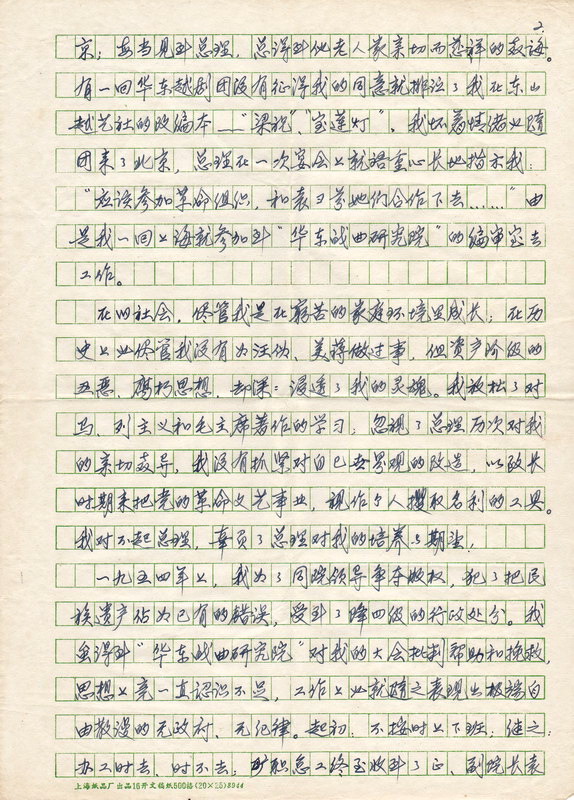 2.
京；每当见到总理，总得到他老人家亲切而慈祥的教诲。
有一回华东越剧团没有征得我的同意就排注了我在东山
越艺社的改编本——"梁祝"、"宝莲灯"，我怀着情绪也随
团来了北京，总理在一次宴会上就语重心长地指示我：
"应该参加革命组织，和袁雪芬她们合作下去……"由
是我一回上海就参加到"华东戏曲研究院"的编审室去
工作。
在旧社会，尽管我是在穷苦的家庭环境里成长；在历
史上也尽管我没有为汪伪、美蒋做过事，但资产阶级的
丑恶、腐朽思想，却深深浸透了我的灵魂。我放松了对
马、列主义和毛主席著作的学习；忽视了总理历次对我
的亲切教导，我没有抓紧对自己世界观的改造，以致长
时期来把党的革命文艺事业，视作个人攫取名利的工具。
我对不起总理，辜负了总理对我的培养与期望！
一九五四年上，我为了同院领导争夺版权，犯了把民
族遗产占为己有的错误，受到了降四级的行政处分。我
虽得到"华东戏曲研究院"对我的大会批判帮助和挽救，
思想上竟一直认识不足，工作上也就随之表现出极端自
由散漫的无政府、无纪律。起初：不按时上下班；继之：
办工时去，时不去；旷职怠工终至收到了正、副院长袁
上海纸品厂出品16开文稿纸500格(20×25)8944